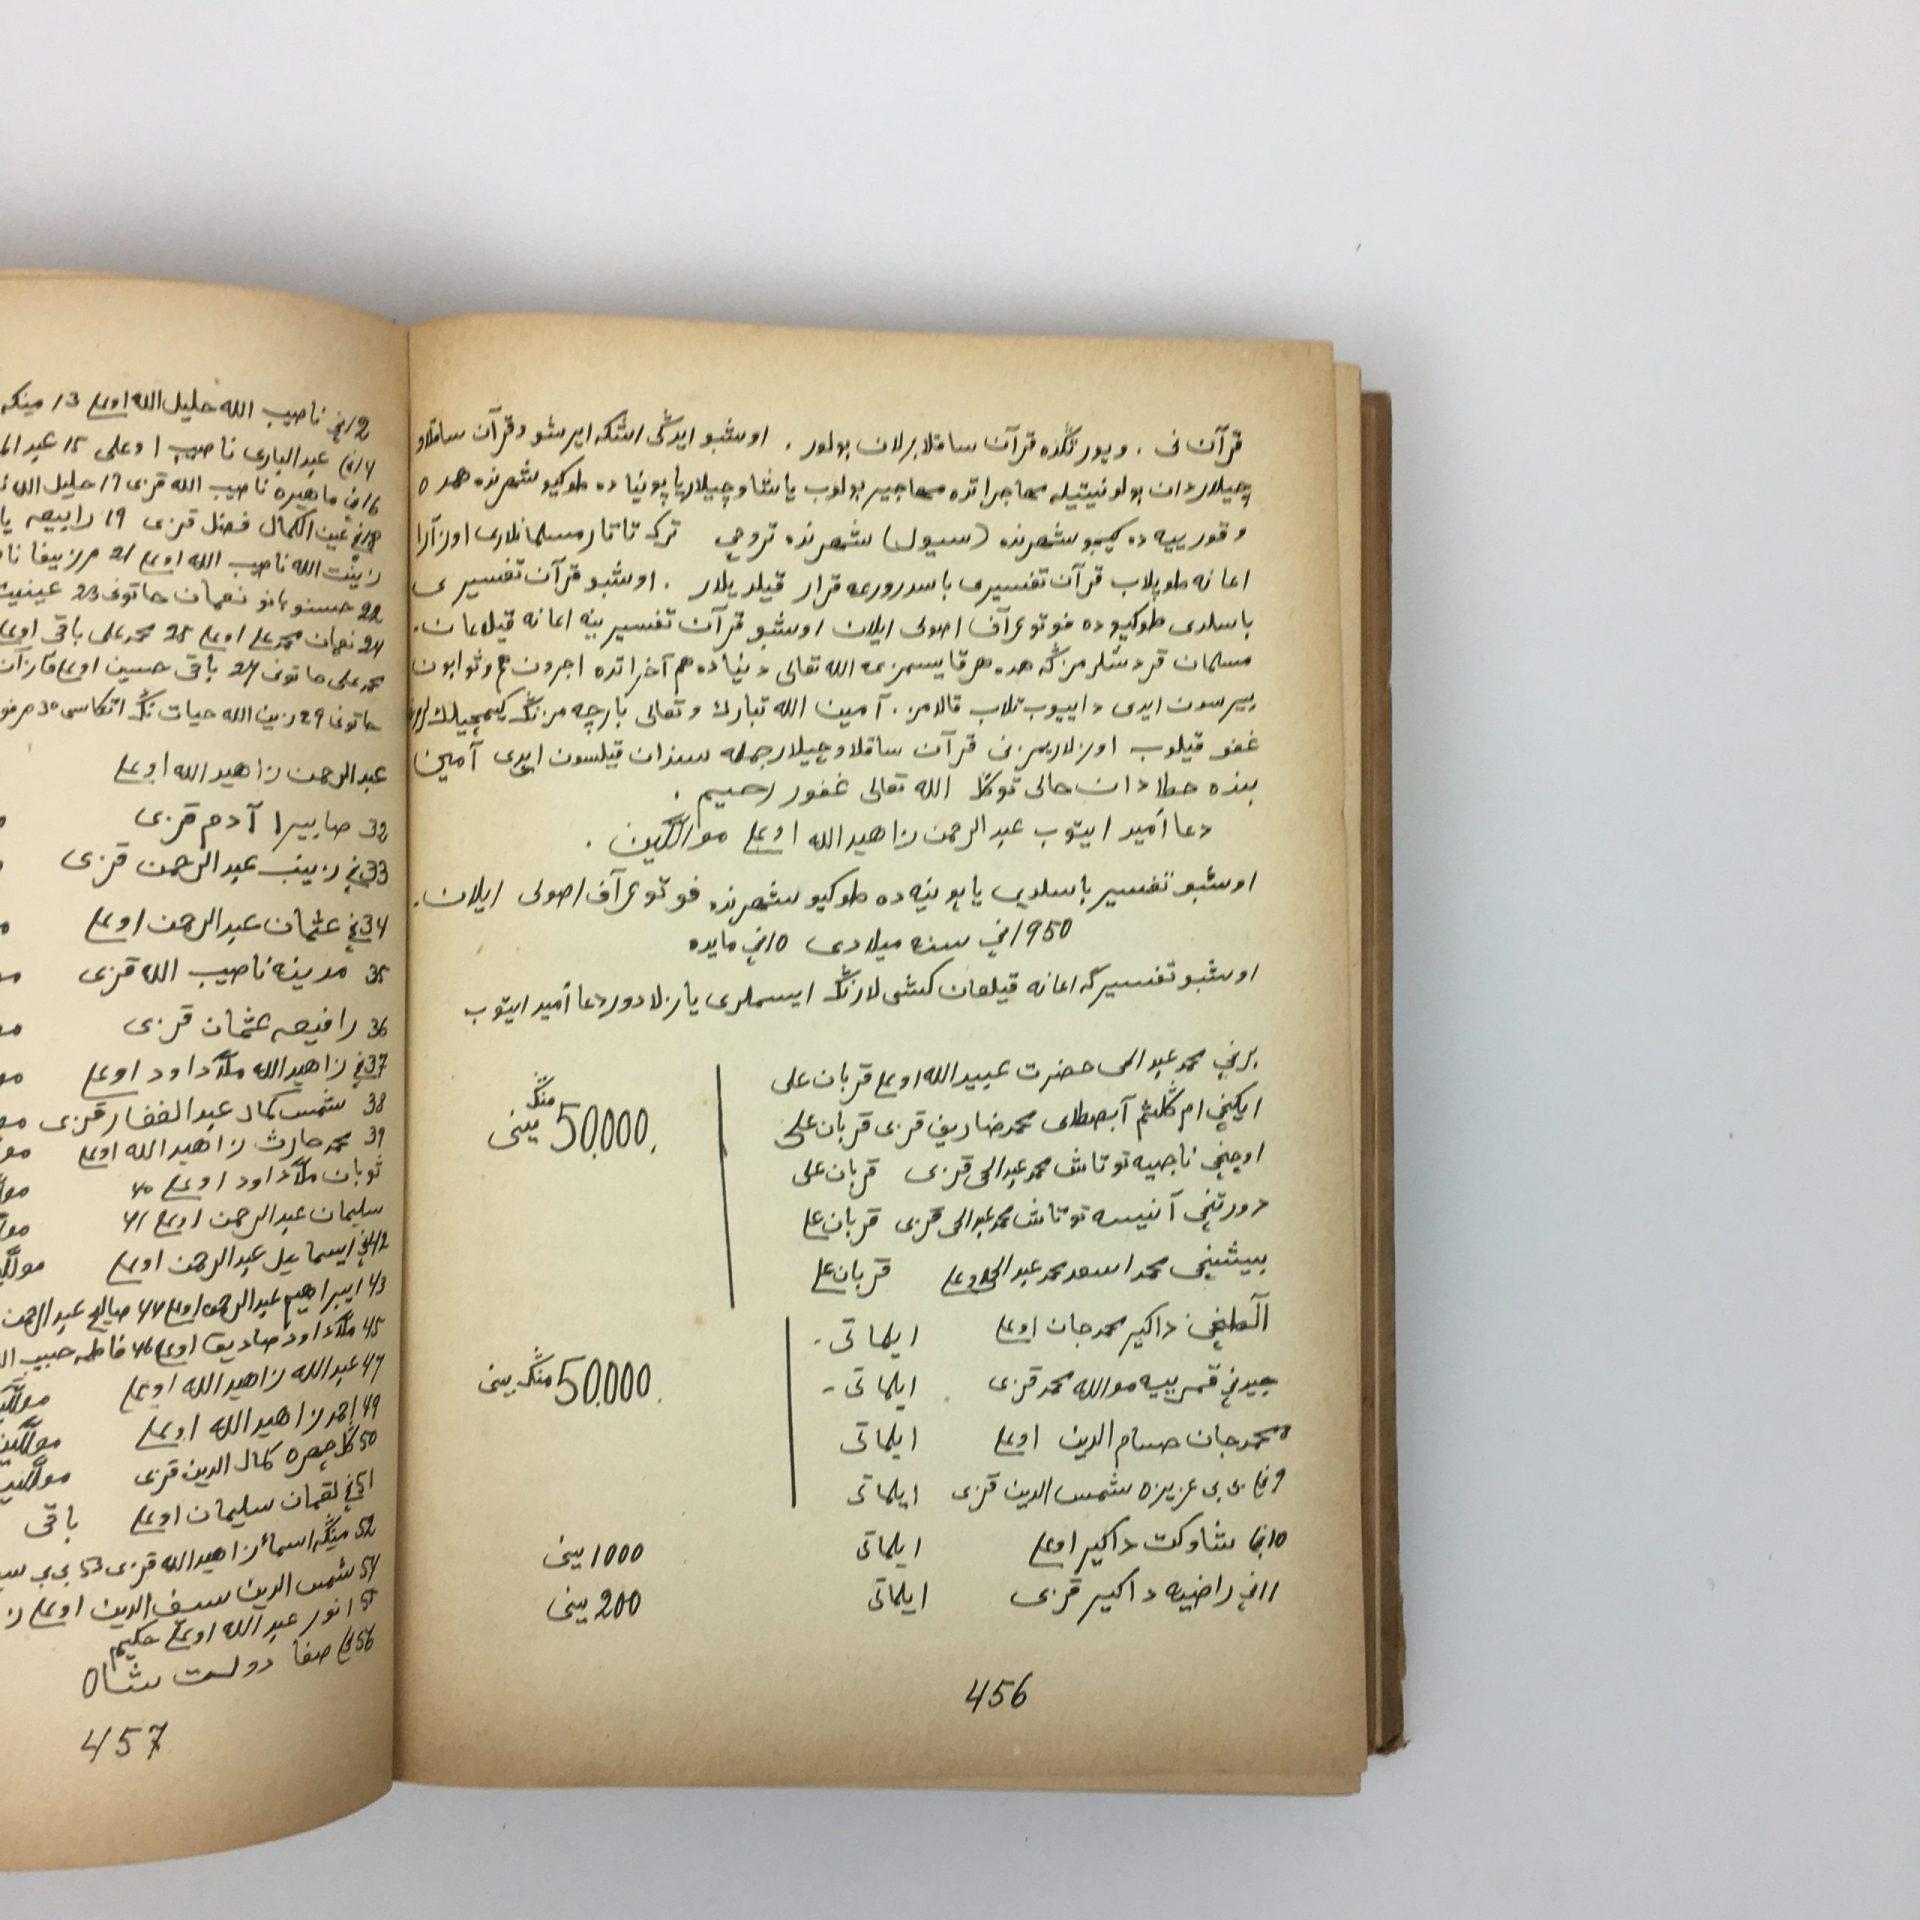 قرآن نی . ویورتڭده قرآن ساقلابرلان بولور . اوشبو ایزگی اشکه ایرشو وقرآن ساقلاو
چیلاردان بولونیتیله مهاجراتده مهاجیر بولوب یاشاوچیلار یاپونیا ده طوکیو شهرنده همده
وقورییه ده کیجو شهرنده (سیول) شهرنده تروچی ترک تاتار مسلمانلاری اوزآرا
اعانه طوپلاب قرآن تفسیری باسدرورعه قرار قیلدیلار . اوشبو قرآن تفسیری
باسلدی طوکیوده فوتوعرآف اصولی ایلان اوشبو قرآن تفسیرینه اعانه قیلعان
مسلمان قردشلرمزگه هده هرقایسمزعه الله تعالی دنیاده هم آخراتده اجرون هم وثوابون
بیرسون ایدی دایبوب تلاب قالامز . آمین الله تبارك وتعالی بارچه مزنڭ کیمچیلك لرن
غفو قیلوب اوزلاریمزنی قرآن ساقلاوچیلار جمله سندان قیلسون ایدی آمین
بنده خطادان خالی توگل الله تعالی غفور رحیم .
دعا أمید ایتوب عبدالرحمن زاهیدالله اوعلی موالکین .
اوشبو تفسیر باسلدی یاپونیه ده طوکیو شهرنده فوتوعرآف اصولی ایلان .
1950نچی سنه میلادی 10نچی مایده
اوشبو تفسیرگه اعانه قیلعان کشی لارنڭ ایسملری یازلادور دعا أمید ایتوب
برنچی محمد عبدالحی حضرت عبیدالله اوعلی قربان علی
ایکنچی ام گلثم آبصطای محمدضاریف قزی قربان علی 50.000 منڭ یینی
اوچنچی ناجیه توتاش محمد عبدالحی قزی قربان علی
دورتنچی آنیسه توتاش محمد عبدالحی قزی قربان علی
بیشنچی محمد اسعد محمد عبدالحی اوعلی قربان علی
آلطنچی داکیر محمدجان اوعلی ایلماتی
جیدنچی قمربیه موالله محمد قزی ایلماتی 50.000 منڭ یینی
8 محمدجان حسام الدین اوعلی ایلماتی
9نچی بی بی عزیزه شمس الدین قزی ایلماتی
10نچی شاوکت داکیر اوعلی ایلماتی 1000 یینی
11نچی راضیه داکیر قزی ایلماتی 200 یینی
456
12نچی ناصیب الله خلیل الله اوعلی 13
14نچی عبدالباری ناصیب اوعلی 15
16نچی ماهیره ناصیب الله قزی 17 خلیل الله
18نچی عین الکمال فضل قزی 19 رابیعه
زینت الله ناصیب الله اوعلی 21
22 حسنوبانو نعمان خاتونی 23
24 نعمان محمدعلی اوعلی 25 محمدعلی باقی اوعلی
محمدعلی خاتونی 27 باقی حسین اوعلی
خاتونی 29 زین الله حیات نڭ اتکاسی 30
عبدالرحمن زاهیدالله اوعلی
32 صابیرا آدم قزی
33نچی زینب عبدالرحمن قزی
34نچی عثمان عبدالرحمن اوعلی
35 مدینه ناصیب الله قزی
36 رافیعه عثمان قزی
37نچی زاهیدالله ملاداود اوعلی
38 شمس کمال عبدالغفار قزی
39 محمدحارث زاهیدالله اوعلی
ثوبان ملاداود اوعلی 40
سلیمان عبدالرحمن اوعلی 41
42نچی ایسماییل عبدالرحمن اوعلی
43 ایبراهیم عبدالرحمن اوعلی 44 صالح عبدالرحمن
45 ملاداود صادیق اوعلی 46 فاطمه حبیب
47 عبدالله زاهیدالله اوعلی
49 احمد زاهیدالله اوعلی
50 گل چهره کمال الدین قزی
51نچی لقمان سلیمان اوعلی باقی
52 مینگه اسماء زاهیدالله قزی 53 بی بی
54 شمس الدین سیف الدین اوعلی
55 انور عبدالله اوعلی حکیم
56نچی صفا دولت شاه
457